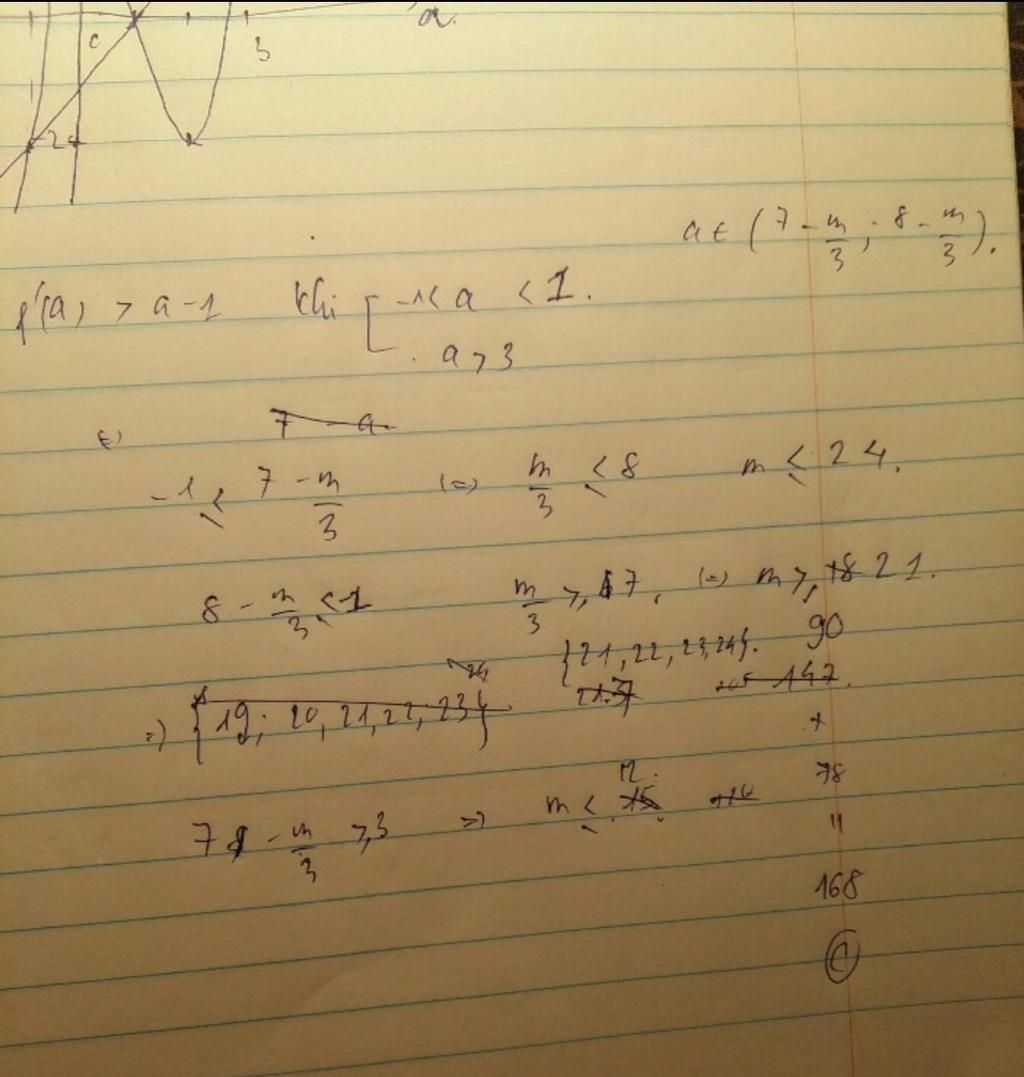 a.
c 3
-2
a ∈ (7 - m/3 ; 8 - m/3).
f'(a) > a - 1 khi [ -1 < a < 1.
a > 3
7 - a
-1 ≤ 7 - m/3 (=) m/3 ≤ 8 m ≤ 24.
8 - m/3 ≤ 1 m/3 ≥ 7. (=) m ≥ 18 21.
{21, 22, 23, 24}. 90
24 21.3 147.
=) {19; 20, 21, 22, 23} +
12. 78
7 - m/3 ≥ 3 => m ≤ 15.
"
168
C